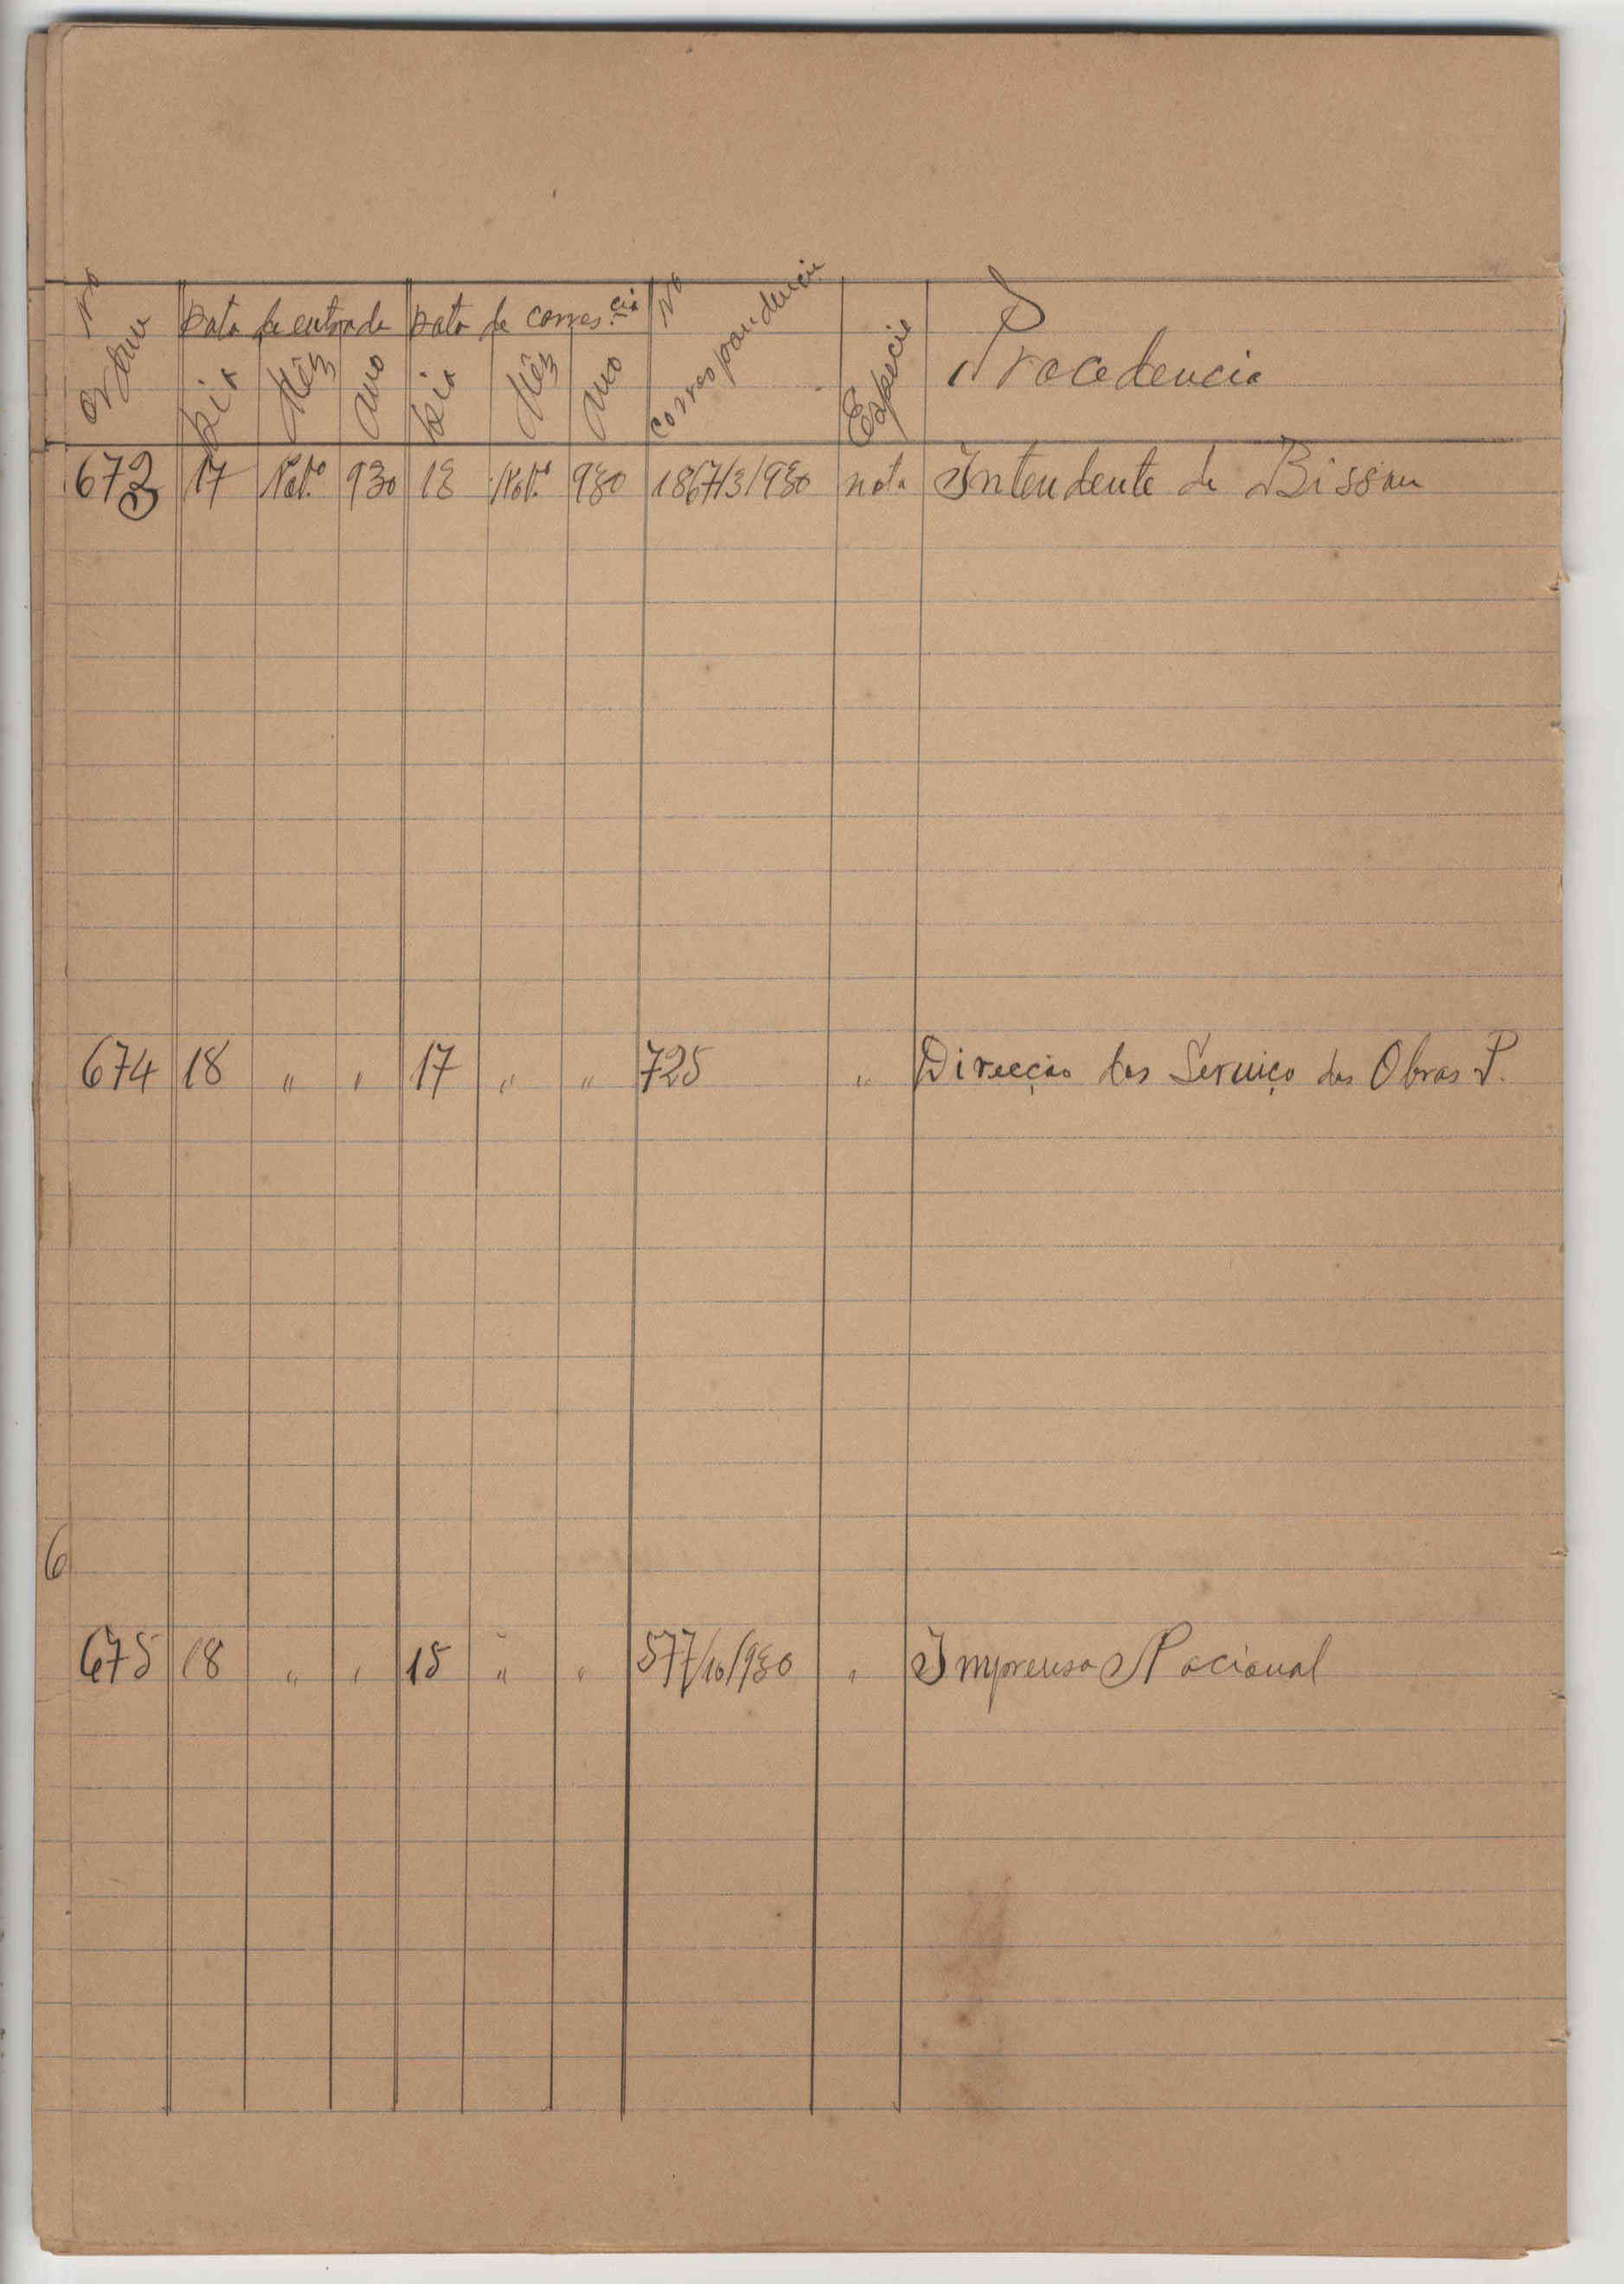 Nº Ordem Data de entrada Data de corres.cia Nº Correspondencia Especie Procedencia
Dia Mêz Ano Dia Mêz Ano
673 17 Nov.º 930 13 Nov.º 930 1867/3/930 nota Intendente de Bissau
674 18 " " 17 " " 725 " Direcção dos Serviço das Obras P.
6
675 18 " " 15 " " 577/10/930 " Imprensa Nacional